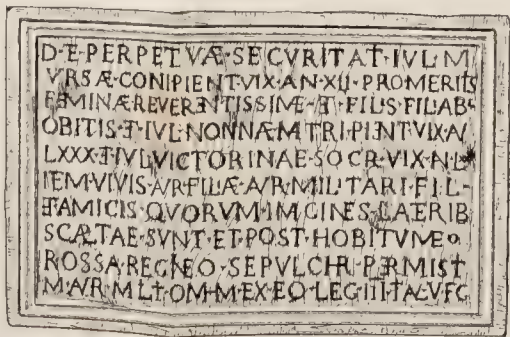 D·E·PERPETVÆ·SECVRITAT·IVL·M
VRSÆ·CONIPIENT·VIX·AN·XLI·PROMERITIS
FEMINÆ·REVERENTISSIME·ET·FILIS·FILIAB
OBITIS·ET·IVL·NONNÆ·MTRI·PIENT·VIX·A
LXXX·ET·IVL·VICTORINAE·SOCR·VIX·N·L
IEM·VIVIS·AVR·FILÆ·AVR·MILITARI·FIL
ET·AMICIS·QVORVM·IMGINES·LAERIB
SCALTAE·SVNT·ET·POST·HOBITVM·E
ROSSA·REGNEO·SEPVLCHRI·PERMIST
M·AVR·MLT·OM·M·EX·EO·LEG·III·ITAL·V·F·C